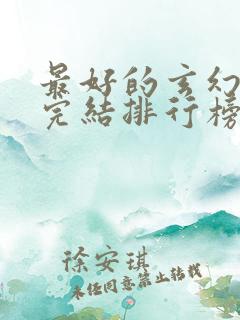 最好的玄幻
完结排行榜
徐安琪
未经同意禁止转载